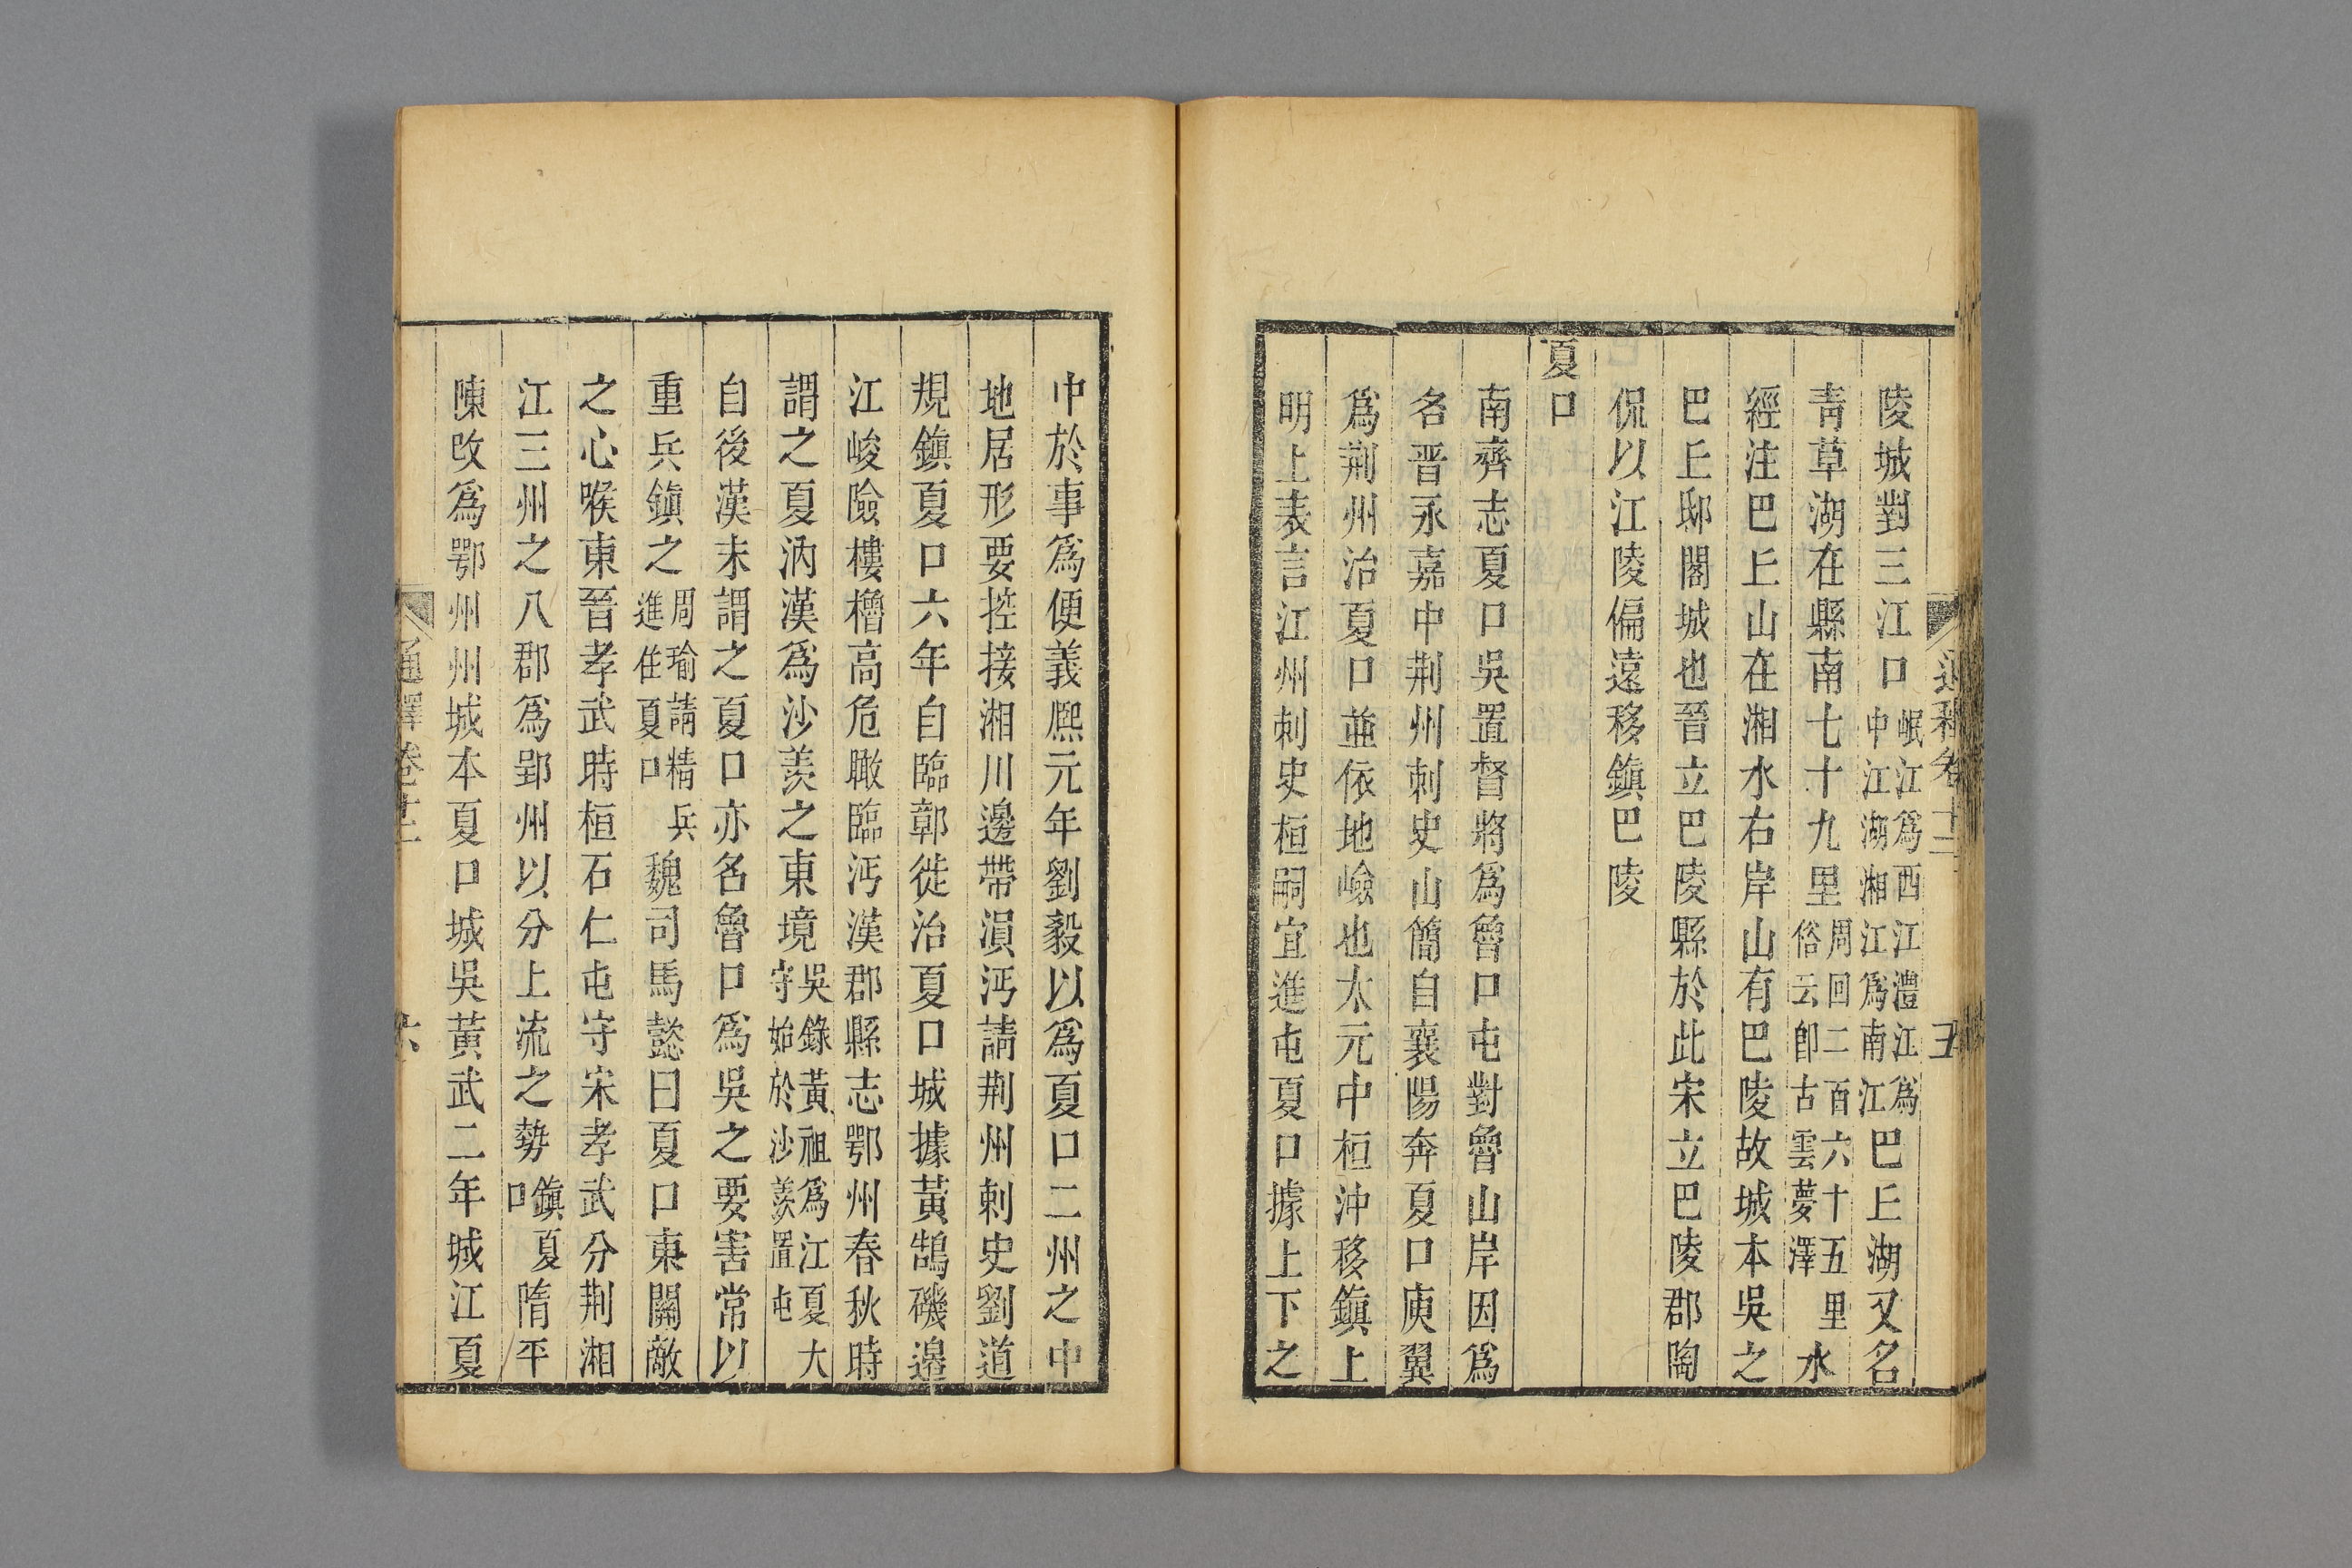 陵城對三江口岷江爲西江澧江爲中江湖湘江爲南江巴丘湖又名
靑草湖在縣南七十九里周回二百六十五里俗云卽古雲夢澤水
經注巴丘山在湘水右岸山有巴陵故城本吳之
巴丘邸閣城也晉立巴陵縣於此宋立巴陵郡陶
侃以江陵偏遠移鎭巴陵
夏口
南齊志夏口吳置督將爲魯口屯對魯山岸因爲
名晉永嘉中荆州刺史山簡自襄陽奔夏口庾翼
爲荆州治夏口並依地嶮也太元中桓沖移鎭上
明上表言江州刺史桓嗣宜進屯夏口據上下之
中於事爲便義熈元年劉毅以爲夏口二州之中
地居形要控接湘川邊帶溳沔請荆州刺史劉道
規鎭夏口六年自臨鄣徙治夏口城據黃鵠磯邊
江峻險樓櫓高危瞰臨沔漢郡縣志鄂州春秋時
謂之夏汭漢爲沙羨之東境吳錄黃祖爲江夏大守始於沙羨置屯
自後漢末謂之夏口亦名魯口爲吳之要害常以
重兵鎭之周瑜請精兵進住夏口魏司馬懿曰夏口東關敵
之心喉東晉孝武時桓石仁屯守宋孝武分荆湘
江三州之八郡爲郢州以分上流之勢鎭夏口隋平
陳改爲鄂州州城本夏口城吳黃武二年城江夏
通釋卷十二
五
通釋卷十二
六